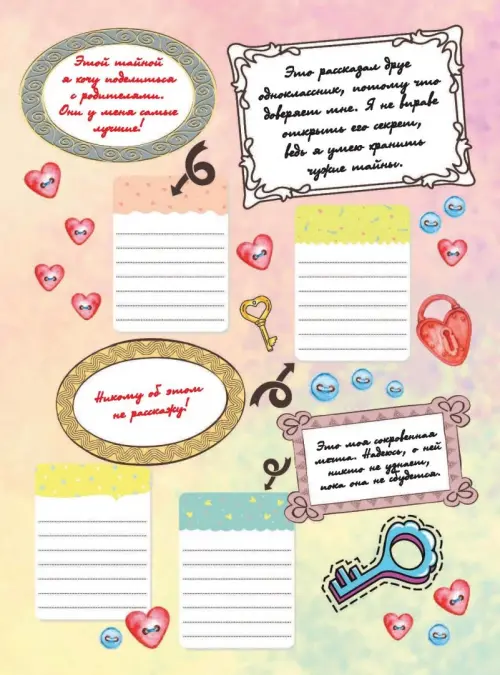 Этой тайной
я хочу поделиться
с родителями.
Они у меня самые
лучшие!
Это рассказал друг
одноклассник, потому что
доверяет мне. Я не вправе
открыть его секрет,
ведь я умею хранить
чужие тайны.
Никому об этом
не расскажу!
Это моя сокровенная
мечта. Надеюсь, о ней
никто не узнает,
пока она не сбудется.